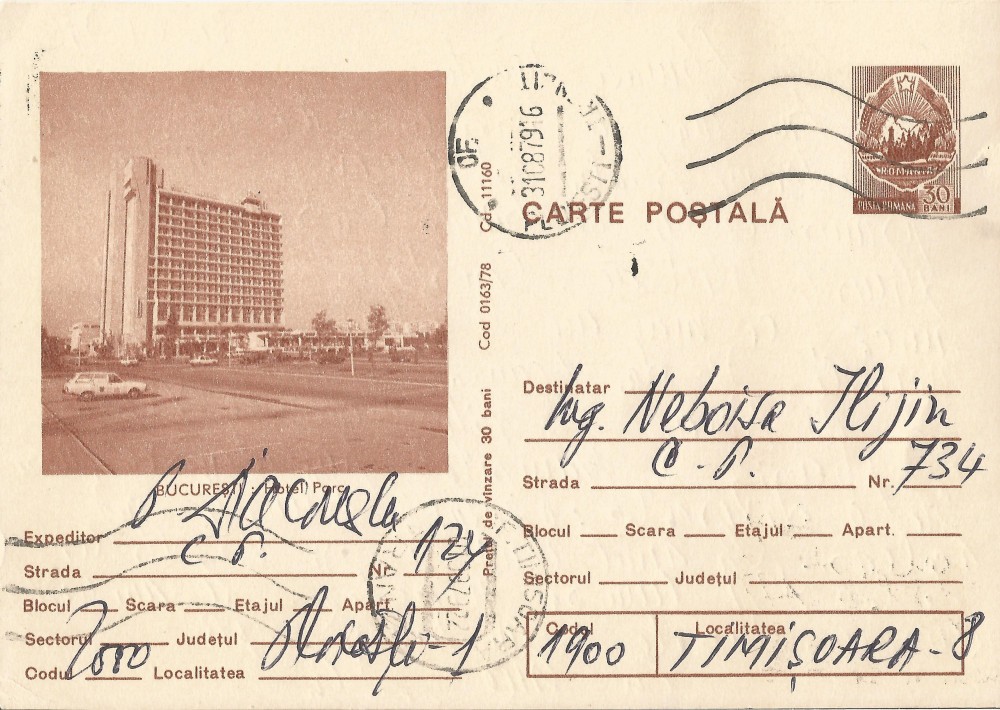 CARTE POȘTALĂ
ROMANIA
POSTA ROMANA 30 BANI
31 08 79 16
PLOIEȘTI
OF.
Cod 0163/78 Cd. 11160
Prețul de vînzare 30 bani
BUCUREȘTI - Hotel Parc
Expeditor
C. P. 124
Strada Nr.
Blocul Scara Etajul Apart.
Sectorul Județul
Codul 2000 Localitatea Ploiești-1
Destinatar Ing. Neboisa Ilijin
C. P. 734
Strada Nr.
Blocul Scara Etajul Apart.
Sectorul Județul
Codul Localitatea
1900 TIMIȘOARA-8